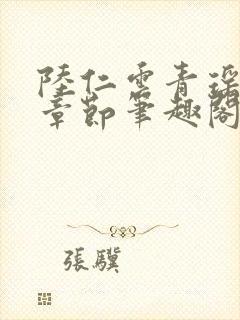 陸仁雲青瑤
章節筆趣閣
張驥